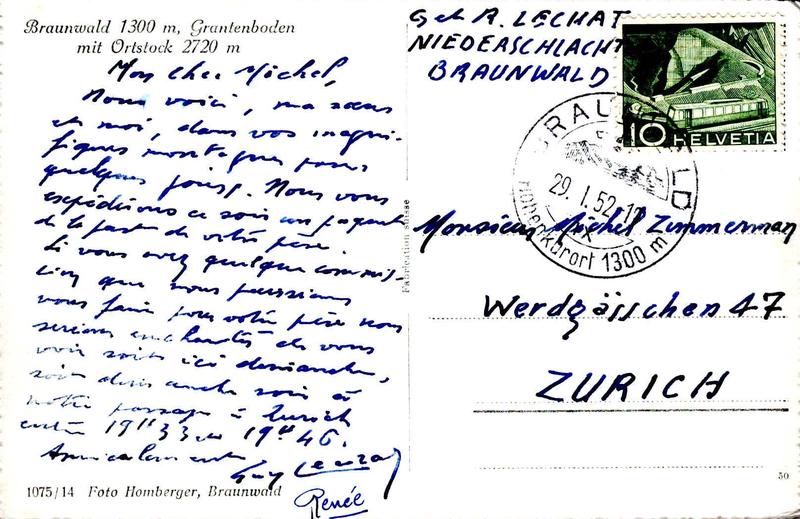 Braunwald 1300 m, Grantenboden
mit Ortstock 2720 m
Mon cher Michel,
Nous voici, ma sœur
et moi, dans vos magni-
fiques montagnes pour
quelques jours. Nous vous
expédions ce soir un paquet
de la part de votre père.
Si vous avez quelque commis-
sion que nous puissions
vous faire pour votre père nous
serions enchantés de vous
voir soit ici dimanche,
soit dimanche soir à
notre passage à Zurich
entre 19H33 et 19H46.
Amicalement
Guy
Renée
1075/14 Foto Homberger, Braunwald
Fabrication Suisse
A. LECHAT
NIEDERSCHLACHT
BRAUNWALD
10 HELVETIA
BRAUNWALD
29.I.52.
Höhenkurort 1300 m
Monsieur Michel Zimmerman
Werdgässchen 47
ZURICH
50